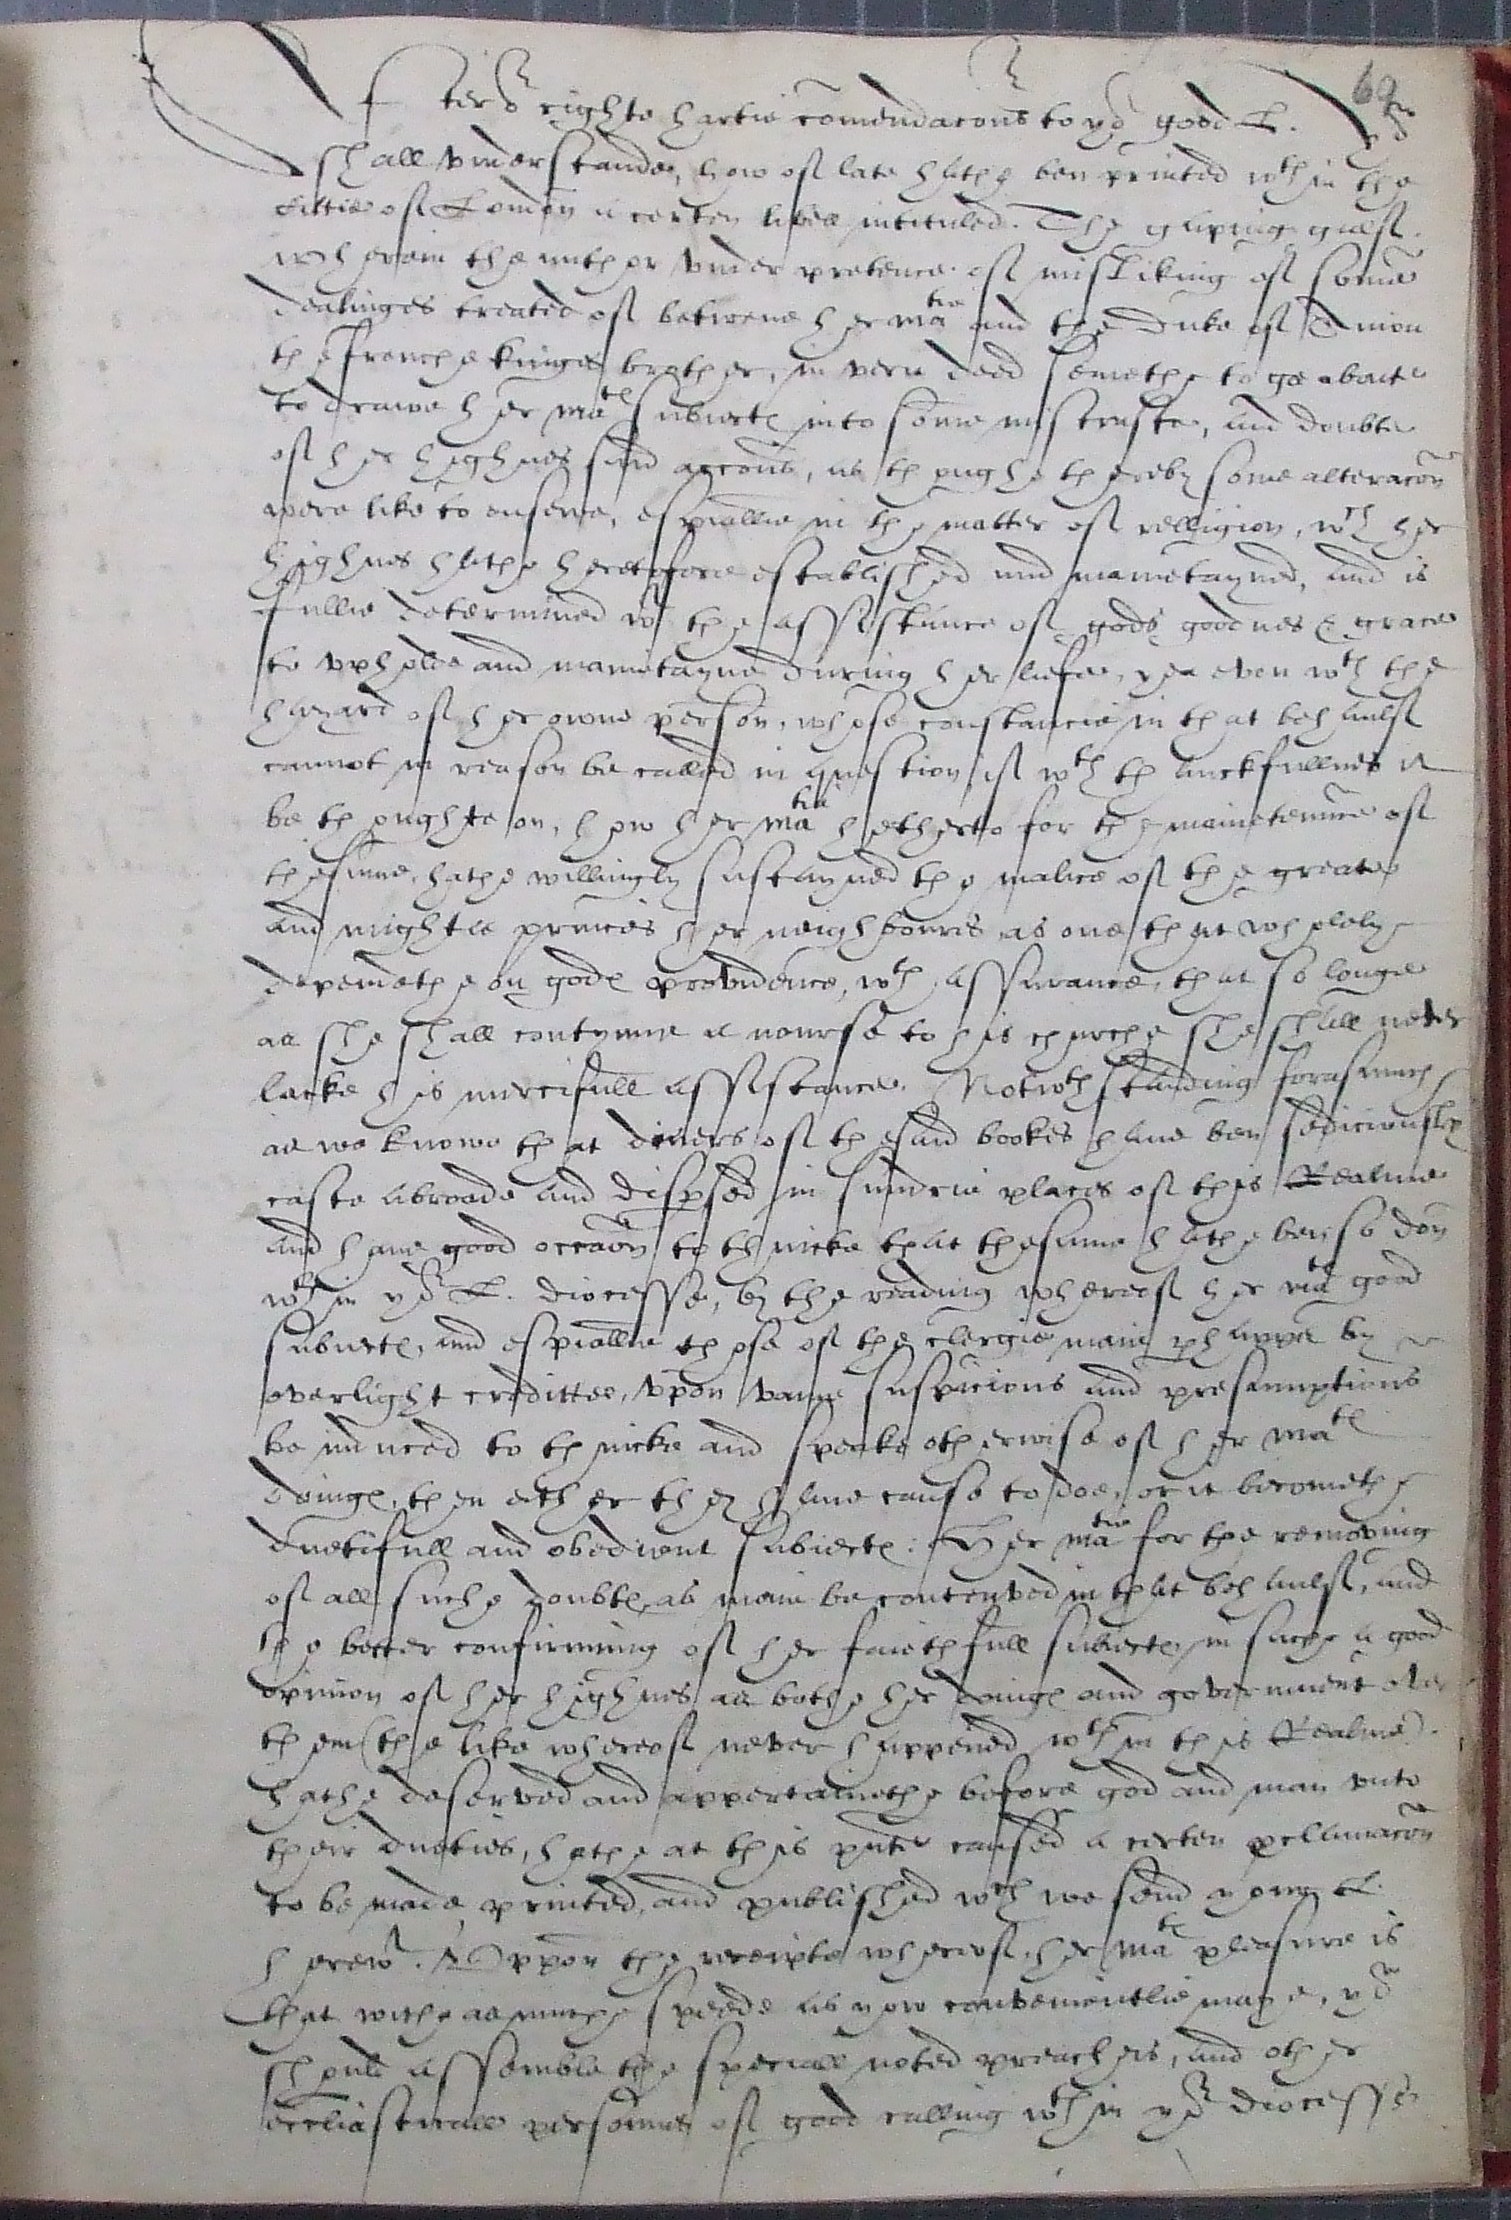 69
After or righte hartie comendacons to yor good L. Yor L.
shall vnderstande, how of late hathe ben printed wthin the
Cittie of London a certen libell intituled. The gaping gulf.
wherein the author vnder pretence of misliking of some
dealinges treated of betwene her matie and the Duke of Aniou
the frenche kinges brother, in verie deed semethe to goe aboute
to drawe her mates subiectes into some mistruste, and doubte
of her highnes said accons, as thoughe thereby some alteracon
were like to ensewe, espiallie in the matter of relligion, wch her
highnes hathe heretofore established and mainetayned, and is
ffullie determined wth the assistance of gods goodnes & grace
to vpholde and mainetayne during her liefe, yea even wth the
hazard of her owne person, whose constancie in that behaulf
cannot in reason be called in question, if wth thanckfullnes it
be thoughte on, how her matie hetherto for the mainetenance of
thesame, hathe willingly sustayned the malice of the greate
and mightie princes her neighbours, as one that wholely
dependethe on godes providence, wth assurance, that so longe
as she shall contynue a nourse to his churche she shall never
lacke his mercifull assistance. Notwthstanding forasmuch
as we knowe that divers of thesaid bookes haue ben sediciouslye
caste abroade and dispsed in sundrie places of this Realme
and haue good occaon to thincke that thesame hathe ben so don
wthin yor L. diocesse, by the reading whereof her mates good
subiectes, and espiallie those of the clergie maie phappes by
overlight credittee, vpon vaine suspicions and presumptions
be induced to thincke and speake otherwise of her mates
doinges, then either they haue cause to doe, or it becomethe
duetifull and obedient subiectes: Her matie for the removing
of all suche doubtes as maie be conceyved in that behaulf, and
the better confirming of her faiethfull subiectes in suche a good
opinion of her highnes as bothe her doinges and government over
them (the like whereof never happened wthin this Realme)
hathe deserved and appertainethe before god and man vnto
their dueties, hathe at this pnte caused a certen pclamacon
to be made printed, and published wch we send your L.
herewth. Vppon the receipte whereof, her mates pleasure is
that withe asmuche speede as yow convenientlie maye, yow
should assemble the speciall noted preachers, and other
ecclesiasticall personnes of good calling wthin yor diocesse